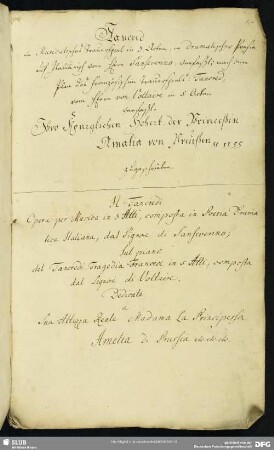 Tancred
ein Musicalisches Trauerspiel in 5 Acten, in Dramatischer Poesie
auf Italienisch vom Herrn Sanseverino, verfasst nach dem
Plan des französischen Trauerspiels Tancred,
vom Herrn von Voltaire in 5 Acten
Ihro Königlichen Hoheit der Princessin
Amalia von Preüssen
zugeschrieben
Il Tancredi
Opera per Musica in 5 Atti, composta in Poesia Dramatica
tica Italiana, dal Signore di Sanseverino;
sul piano
del Tancredi Tragedia Francese in 5 Atti, composta
dal Signore di Voltaire.
Dedicata
a
Sua Altezza Reale Madama La Principessa
Amelia di Prussia etc. etc. etc.
SLUB